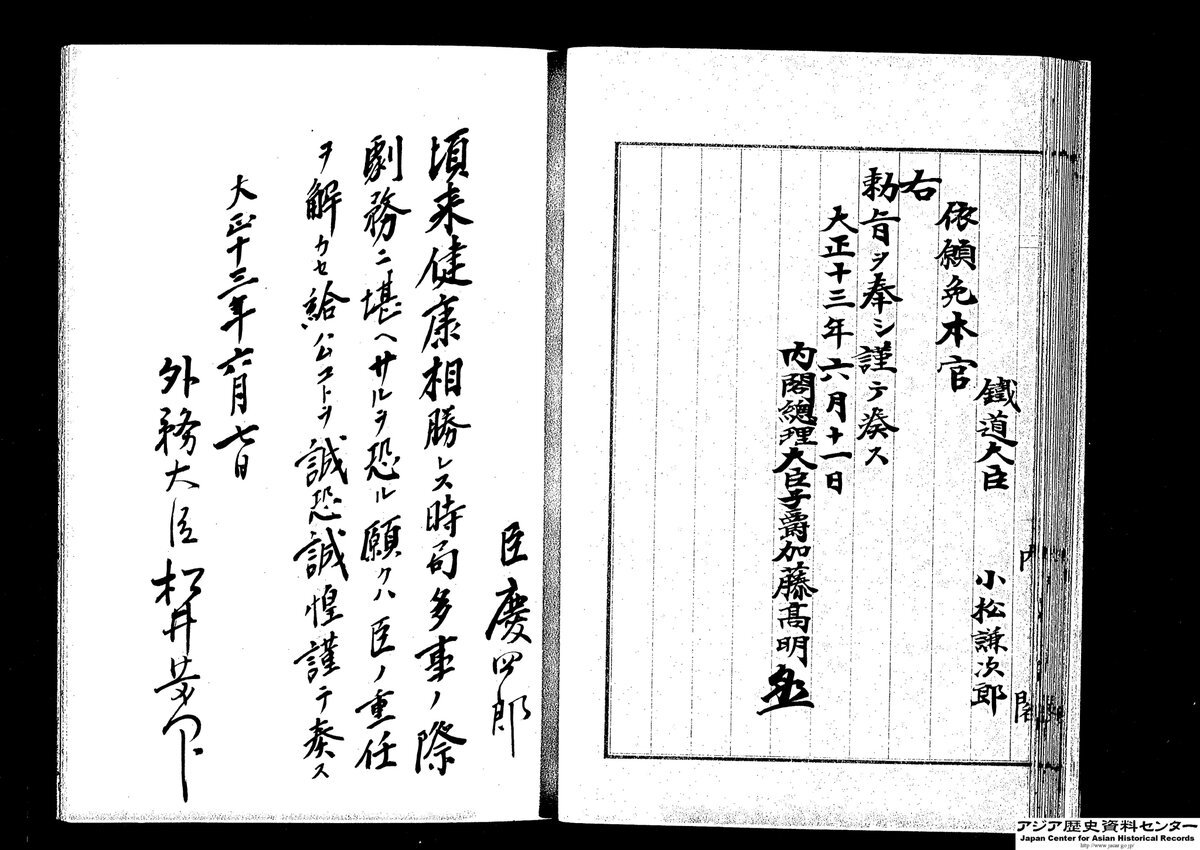 鐵道大臣 小松謙次郎
依願免本官
右
勅旨ヲ奉シ謹テ奏ス
大正十三年六月十一日
內閣總理大臣子爵加藤高明
內閣
臣慶四郎
頃来健康相勝レス時局多事ノ際
劇務ニ堪ヘサルヲ恐ル願クハ臣ノ重任
ヲ解カセ給ハムコトヲ誠恐誠惶謹テ奏ス
大正十三年六月七日
外務大臣松井慶四郎
アジア歴史資料センター
Japan Center for Asian Historical Records
http://www.jacar.go.jp/